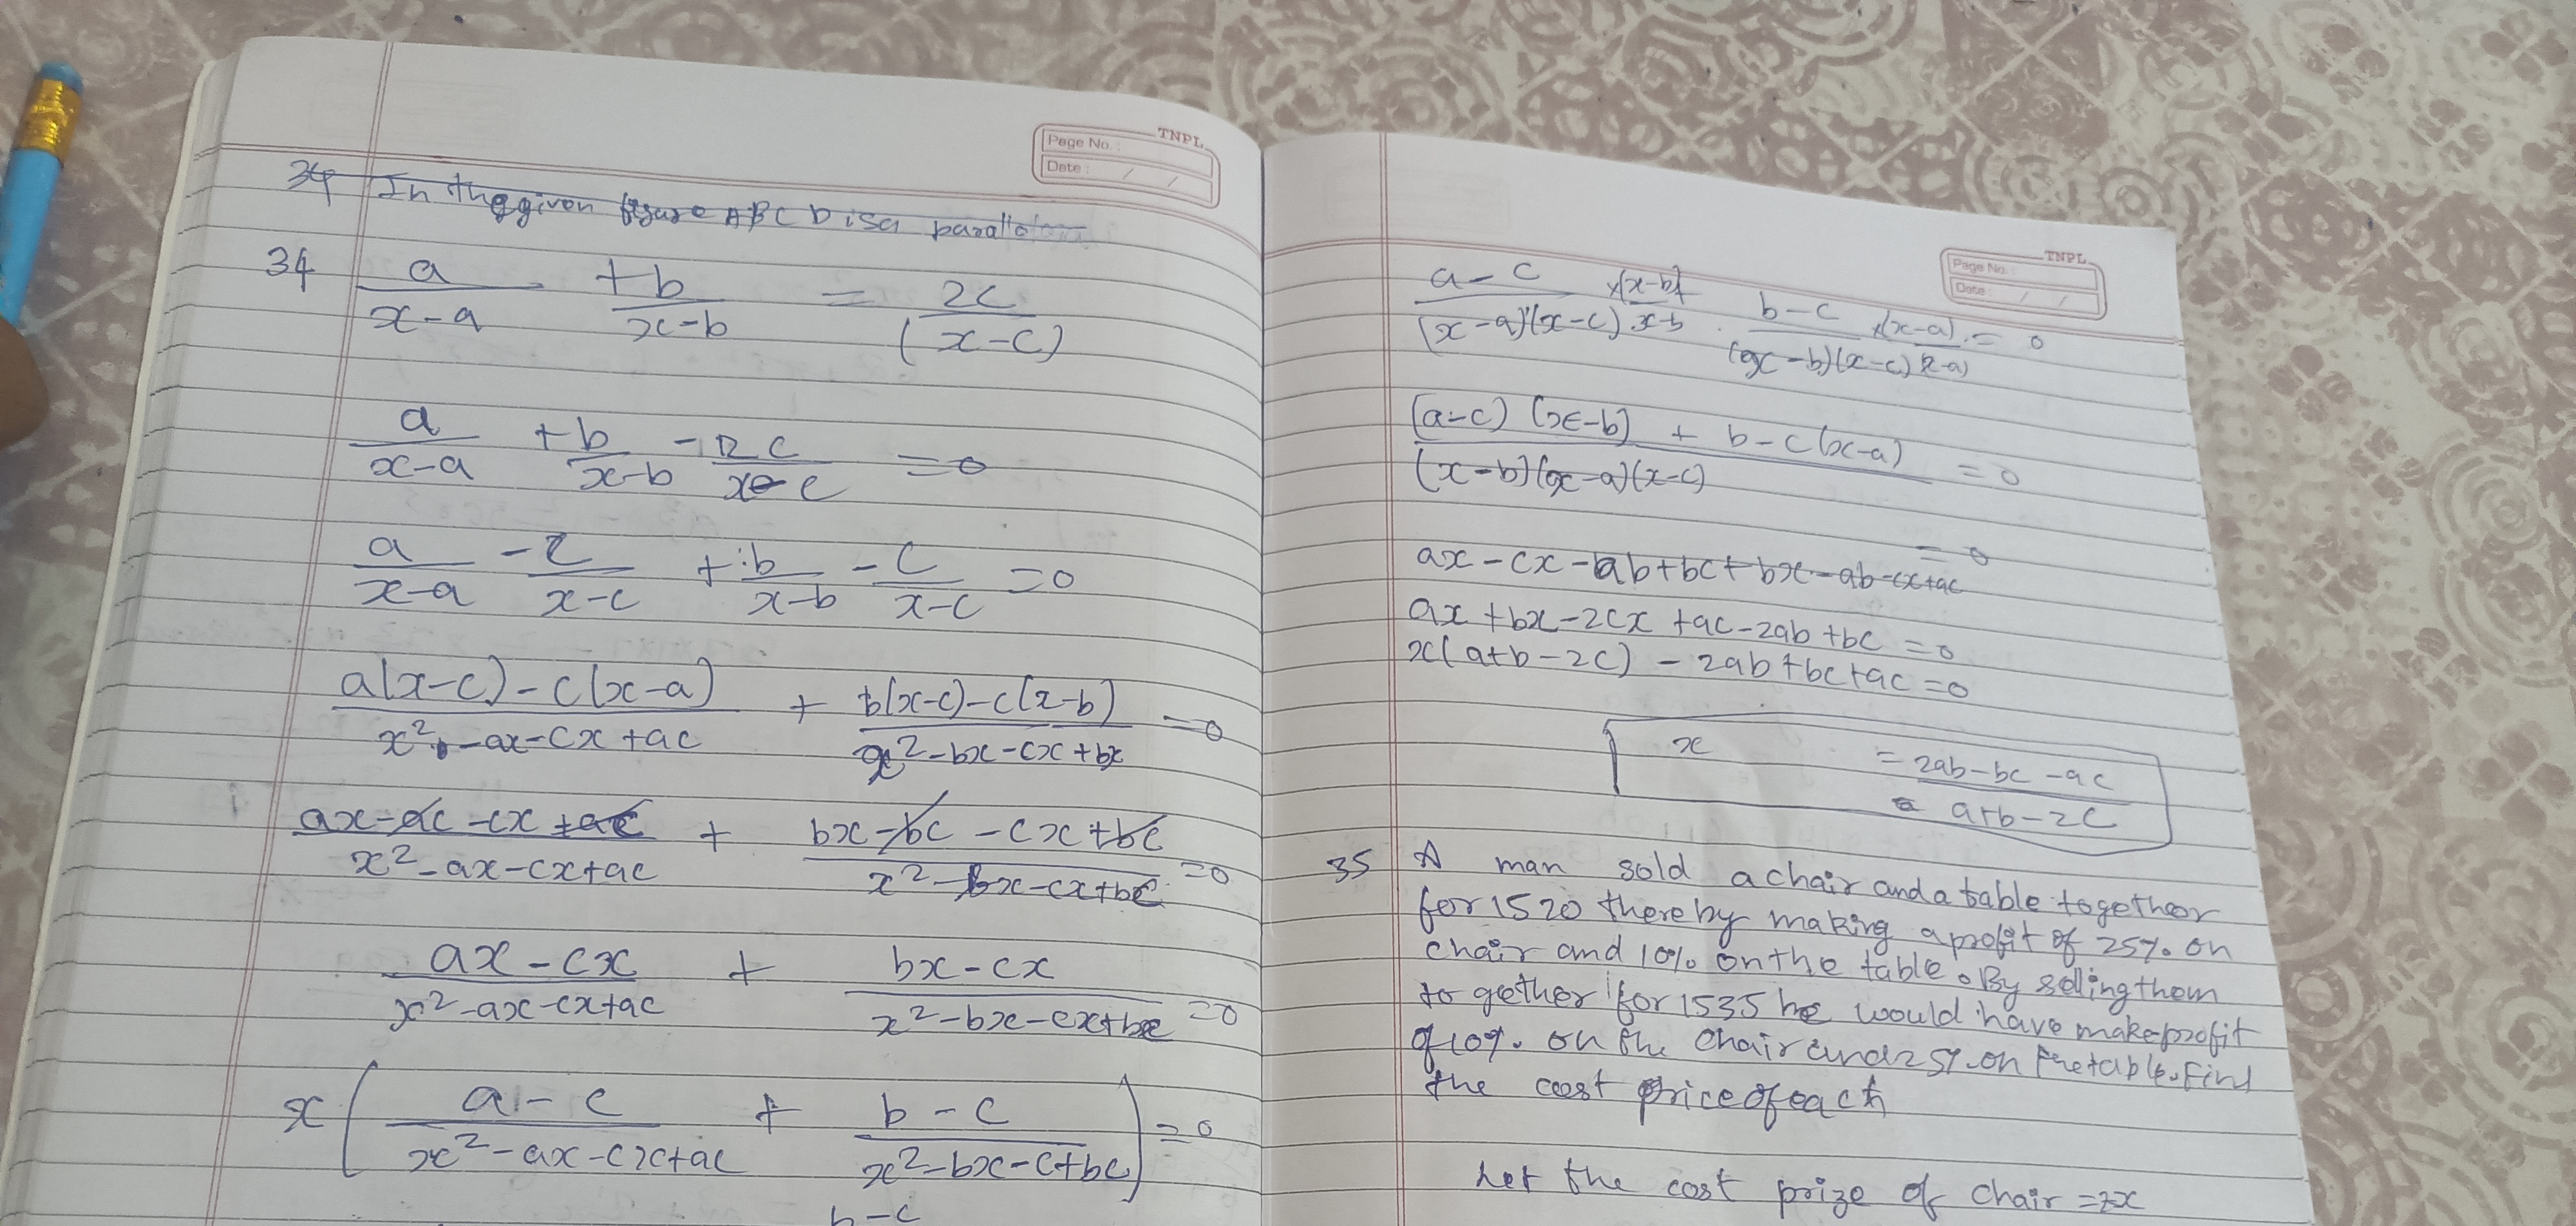 TNPL
Page No. :
Date : / /
34 In the given figure ABCD is a
34 a/(x-a) + b/(x-b) = 2c/(x-c)
a/(x-a) + b/(x-b) - 2c/(x-c) = 0
a/(x-a) - c/(x-c) + b/(x-b) - c/(x-c) = 0
(a(x-c)-c(x-a))/(x²-ax-cx+ac) + (b(x-c)-c(x-b))/(x²-bx-cx+bx) = 0
(ax-ac-cx+ac)/(x²-ax-cx+ac) + (bx-bc-cx+bc)/(x²-bx-cx+bc) = 0
(ax-cx)/(x²-ax-cx+ac) + (bx-cx)/(x²-bx-cx+bc) = 0
x((a-c)/(x²-ax-cx+ac) + (b-c)/(x²-bx-c+bc)) = 0
b-c
TNPL
Page No. :
Date : / /
(a-c)/((x-a)(x-c)) ×(x-b)/(x-b) . (b-c)/((x-b)(x-c)) ×(x-a)/(x-a) = 0
((a-c)(x-b) + b-c(x-a))/((x-b)(x-a)(x-c)) = 0
ax-cx-ab+bc+bx-ab-cx+ac = 0
ax+bx-2cx+ac-2ab+bc = 0
x(a+b-2c) - 2ab+bc+ac = 0
x = (2ab-bc-ac)/(a+b-2c)
35 A man sold a chair and a table together
for 1520 there by making a profit of 25% on
chair and 10% on the table. By selling them
to gether for 1535 he would have make profit
of 10%. on the chair and 25%. on the table. Find
the cost price of each
Let the cost prize of chair = x